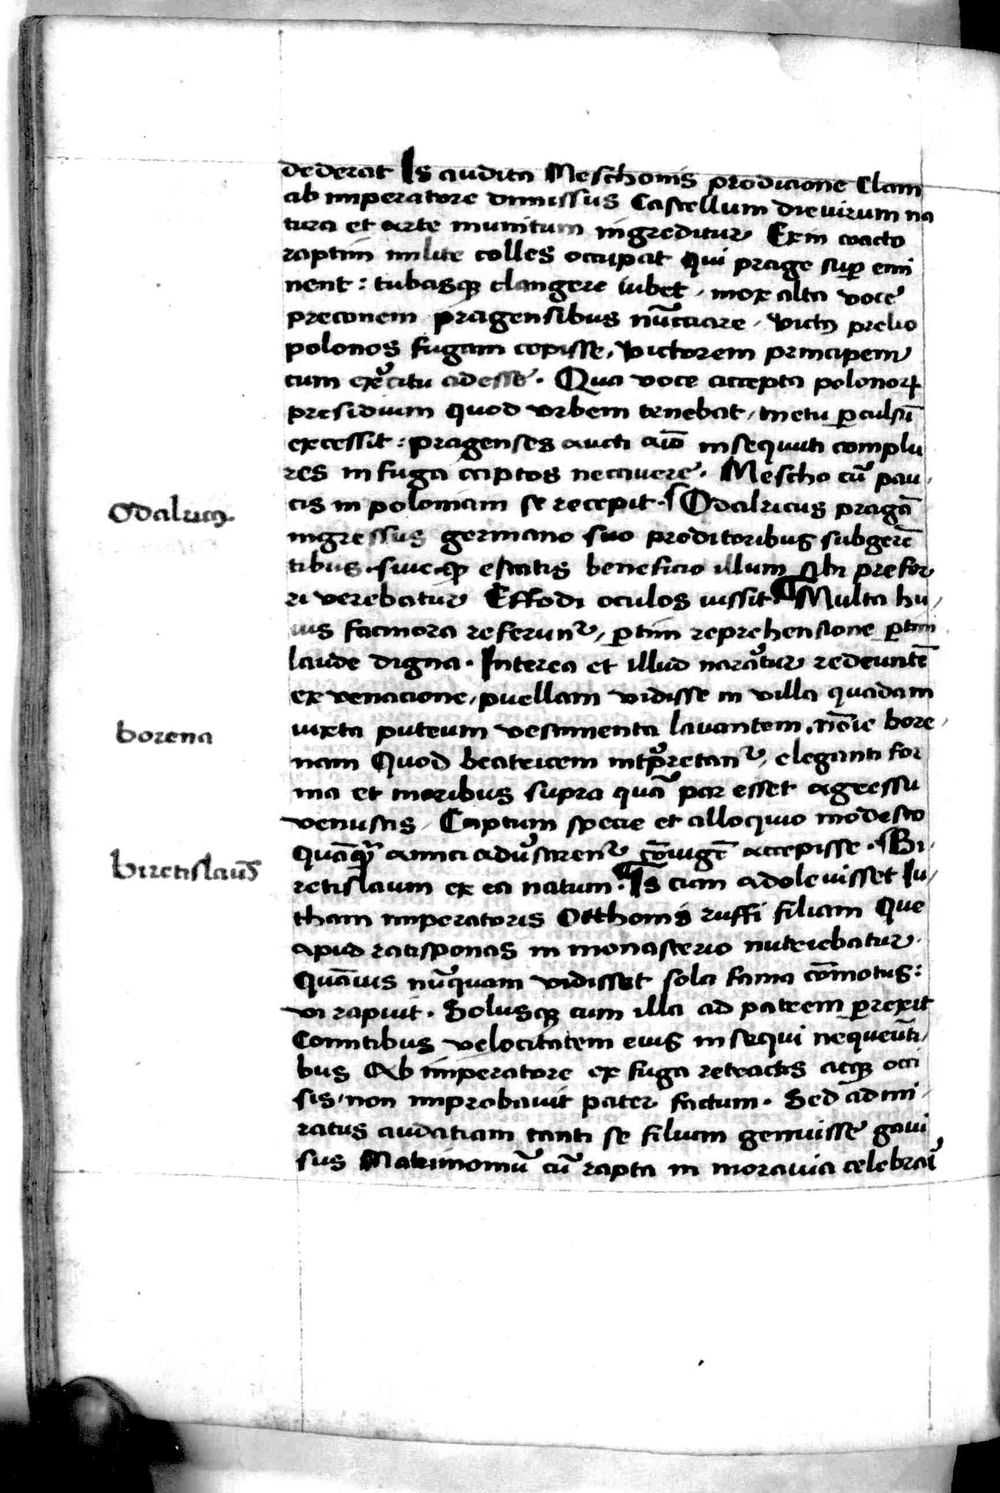 dederat Is audita Meschonis prodicione Clam
ab imperatore dimissus Castellum dievirum na
tura et arte munitum ingreditur Exin coacto
raptim milite colles occupat qui prage sup emi
nent : tubasqꝫ clangere iubet, mox alta voce
preconem pragensibus nūcciare, victꝯ prelio
polonos fugam cepisse, victorem principem
cum exꝰcitu adesse. Qua voce accepta polonoꝝ
presidium quod vrbem tenebat, metu ꝑculsū
excessit : pragenses aucti aīo insequuti complu
res in fuga captos necavere. Mescho cū pau,
cis in poloniam se recepit. Odalricus pragā
Odalricꝯ
ingressus germano suo proditoribus subgerē
tibus. siueqꝫ etatis beneficio illum sibi prefer
ri verebatur Effodi oculos iussit. Multa hu,
ius facinora referunᷣ, ꝑtim reprehensione ꝑtim
laude digna. Interea et illud naraᷣtur redeuntē
ex venacione, puellam vidisse in villa quadam
iuxta puteum vestimenta lavantem, nōie bore,
borena
nam Quod beatricem intꝑretanᷣ, eleganti for
ma et moribus supra quā par esset agressu
venustis, Captum specie et alloquio modesto
Quāqꝫ amici aduᷣsarenᷣ cōiugē accepisse. Bi,
Biretislaus
retislaum ex ea natum. Is cum adolevisset Iu,
tham imperatoris Otthonis ruffi filiam Que
apud ratisponas in monasterio nutriebatur.
Quāuis nūquam vidisset sola fama cōmotus:
vi rapuit. Solusqꝫ cum illa ad patrem ꝑrexit
Comitibus velocitatem eius insequi nequeūti,
bus Ab imperatore ex fuga retractis atqꝫ occi
sis, non improbavit pater factum. Sed admi,
ratus audatiam tanti se filium genuisse gavi
sus Matrimoniū cū rapta in moravia celebraᷣi